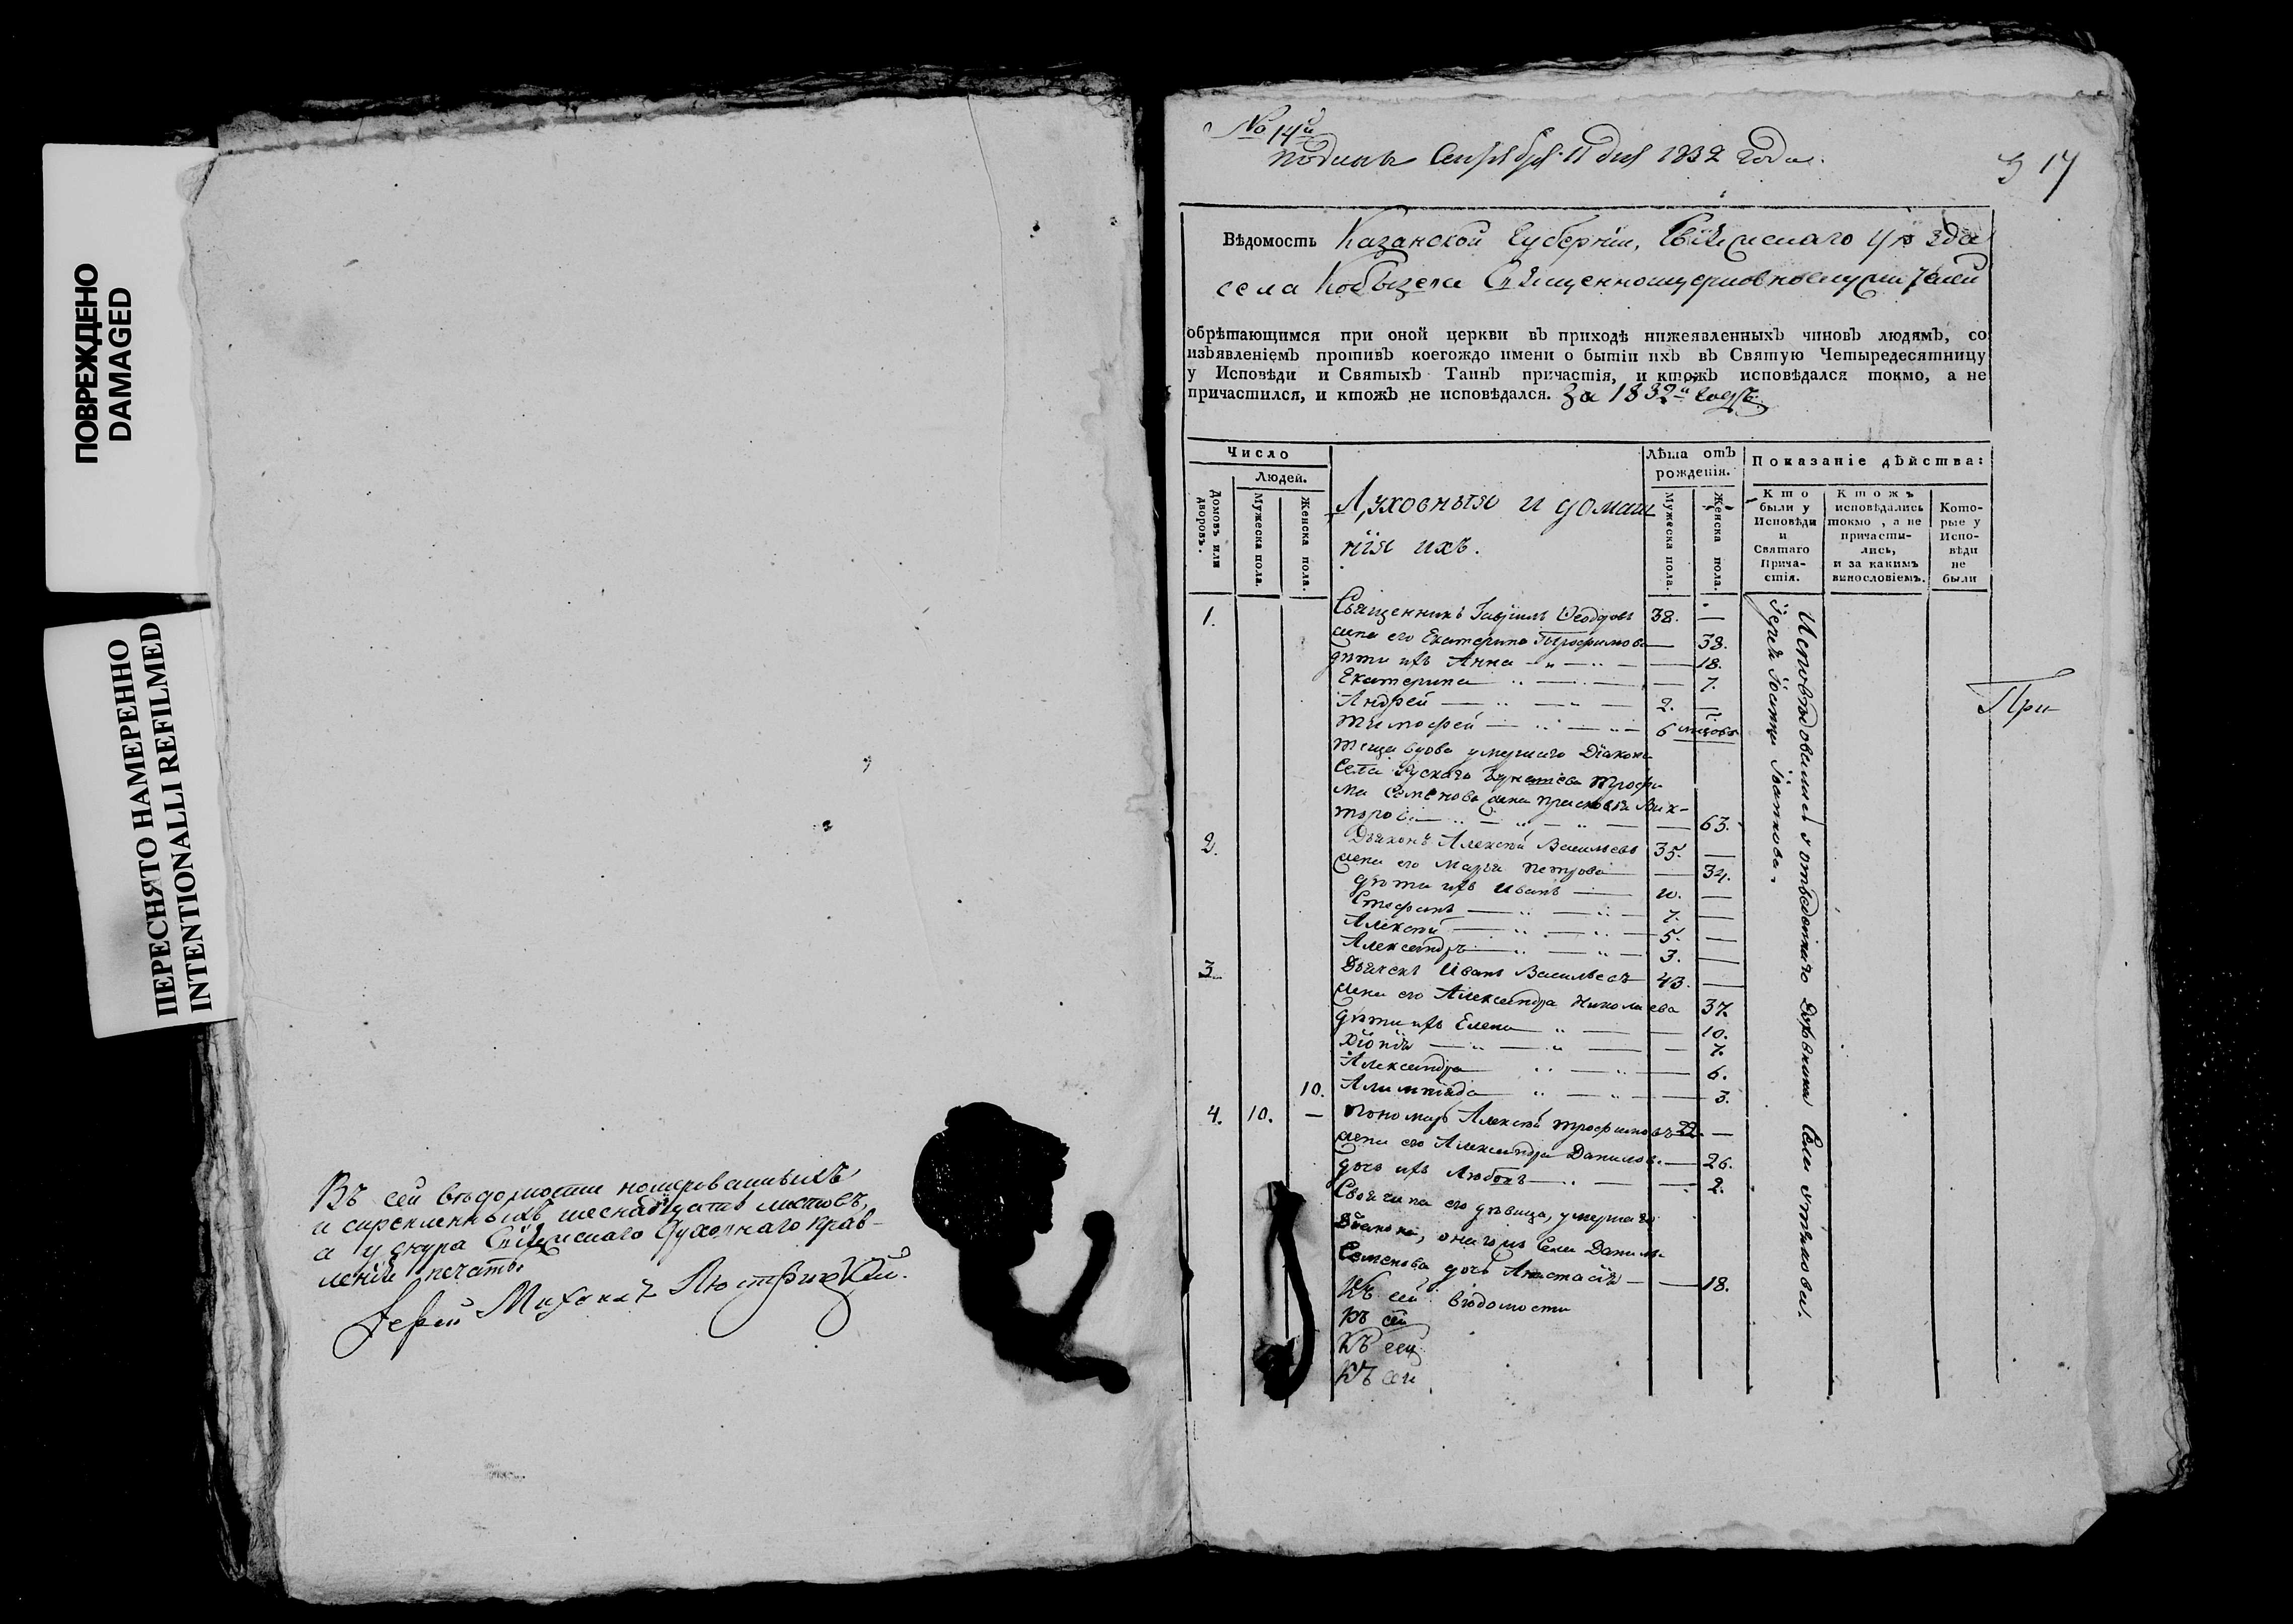 ПОВРЕЖДЕНО
DAMAGED
ПЕРЕСНЯТО НАМЕРЕННО
INTENTIONALLI REFILMED
Въ сей вѣдомости номерованныхъ
и скрепленныхъ шеснадцать листовъ,
а у шнура Свіяжскаго Духовнаго прав-
ленія печать.
Іерей Михаилъ
№ 14й
Подана Сентября 11 дня 1832 года.
17
Вѣдомость Казанской Губерніи, Свіяжскаго уѣзда
села Кобызева Священноцерковнослужителей
обрѣтающимся при оной церкви въ приходѣ нижеявленныхъ чиновъ людямъ, со
изъявленіемъ противъ коегождо имени о бытіи ихъ въ Святую Четыредесятницу
у Исповѣди и Святыхъ Таинъ причастія, и ктожъ исповѣдался токмо, а не
причастился, и ктожъ не исповѣдался. За 1832й годъ.
Число
Людей.
Домовъ или дворовъ.
Мужеска пола.
Женска пола.
Духовныя и домаш
нія ихъ.
Лѣта отъ
рожденія.
Мужеска пола.
Женска пола.
Показаніе дѣйства:
Кто
были у
Исповѣди
и
Святаго
Прича-
стія.
Ктожъ
исповѣдались
токмо, а не
причасти-
лись,
и за какимъ
винословіемъ.
Кото-
рые у
Испо-
вѣди
не
были
1. Священникъ Гавріилъ Ѳеодоровъ 38. —
жена его Екатерина Трофимова — 38.
дѣти ихъ Анна — 18.
Екатерина — 7.
Андрей 2. —
Тимофей 6 мѣсецовъ
Теща вдова умершаго Діакона
села Рускаго Трофи
ма Семенова жена Прасковья Вик-
торова — 63.
2. Дьяконъ Алексѣй Васильевъ 35. —
жена его Марья Петрова — 34.
дѣти ихъ Иванъ 10. —
Стефанъ 7. —
Алексѣй 5. —
Александръ 3. —
3. Дьячекъ Иванъ Васильевъ 43. —
жена его Александра Николаева 37
дѣти ихъ Елена — 10.
Хіонія — 7.
Александра — 6.
10. Алимпіада — 3.
4. 10. — Пономарь Алексѣй Трофимовъ 22. —
жена его Александра Данилов. — 26.
дочь ихъ Любовь — 2.
Своячина его дѣвица, умершаго
Дьякона, онагожъ села Данила
Семенова дочь Анастасія — 18.
Къ сей вѣдомости
Къ сей
Къ сей
Къ сей
Исповѣдовались у отведеннаго Духовника села
Іерей Іоаннъ Іоанновъ.
При-